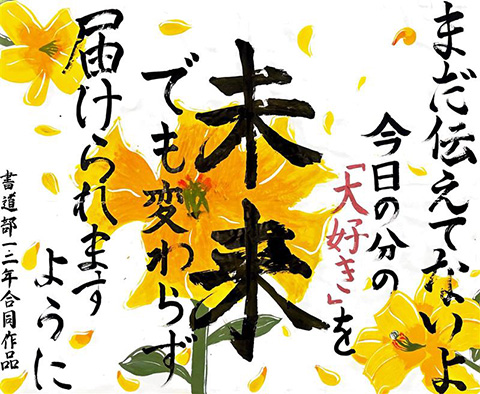 まだ伝えてないよ
今日の分の
「大好き」を
未来
でも変わらず
届けられます
ように
書道部一二年合同作品